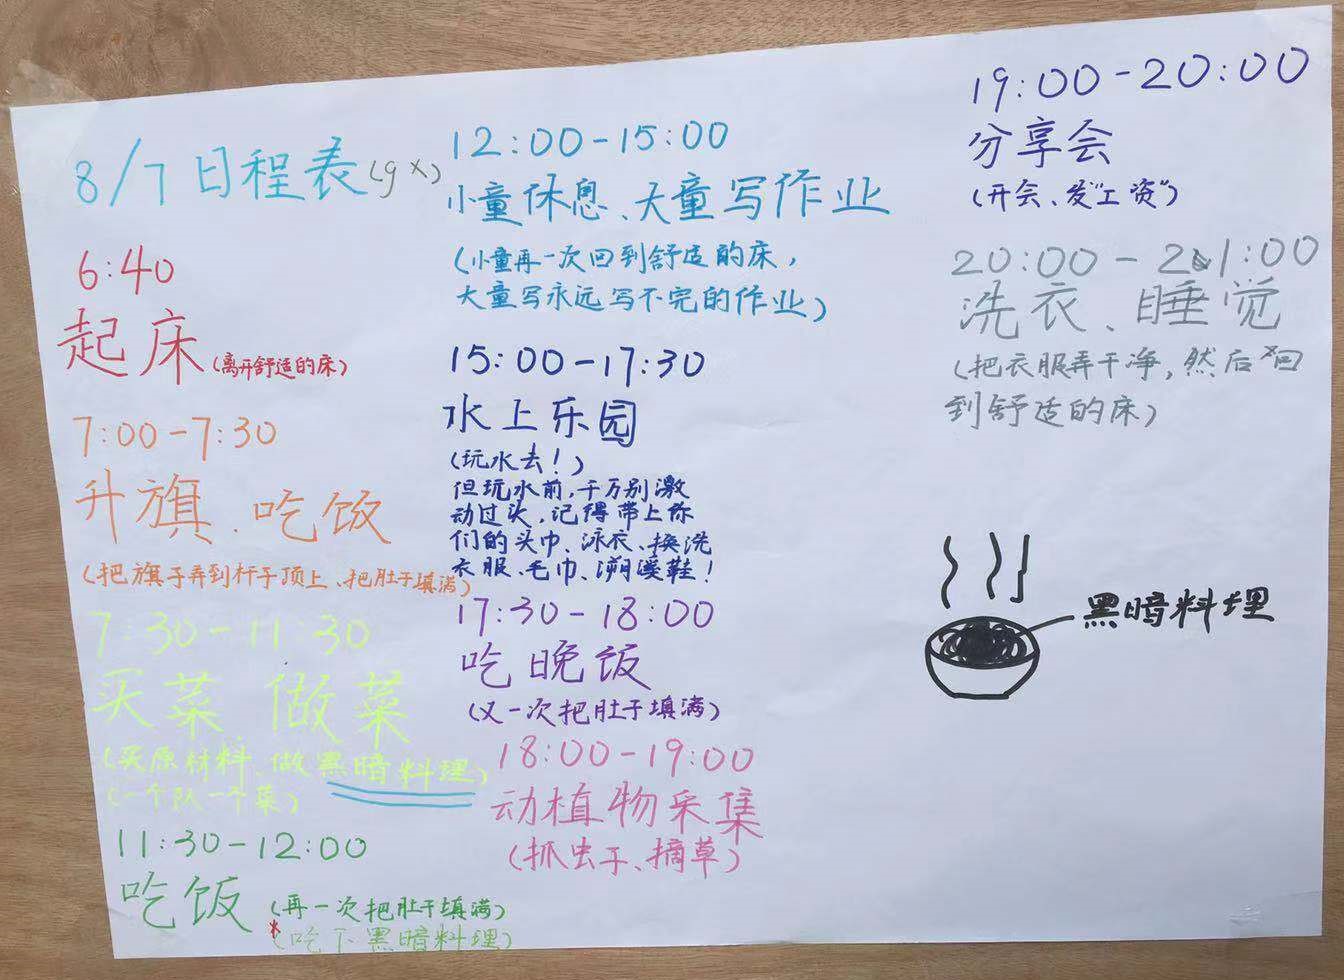 8/7日程表(gx)
6:40
起床(离开舒适的床)
7:00-7:30
升旗、吃饭
(把旗子弄到杆子顶上、把肚子填满)
7:30-11:30
买菜、做菜
(买原材料、做黑暗料理)
(一个队一个菜)
11:30-12:00
吃饭(再一次把肚子填满)
*(吃下黑暗料理)
12:00-15:00
小童休息、大童写作业
(小童再一次回到舒适的床,
大童写永远写不完的作业)
15:00-17:30
水上乐园
(玩水去!)
但玩水前,千万别激
动过头,记得带上你
们的头巾、泳衣、换洗
衣服、毛巾、溯溪鞋!
17:30-18:00
吃晚饭
(又一次把肚子填满)
18:00-19:00
动植物采集
(抓虫子、摘草)
19:00-20:00
分享会
(开会、发"工资")
20:00-21:00
洗衣、睡觉
(把衣服弄干净,然后回
到舒适的床)
黑暗料理